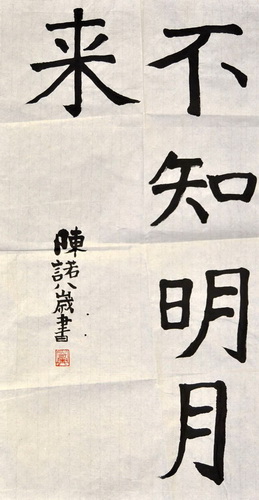 不知明月
来
陳諾八歲書